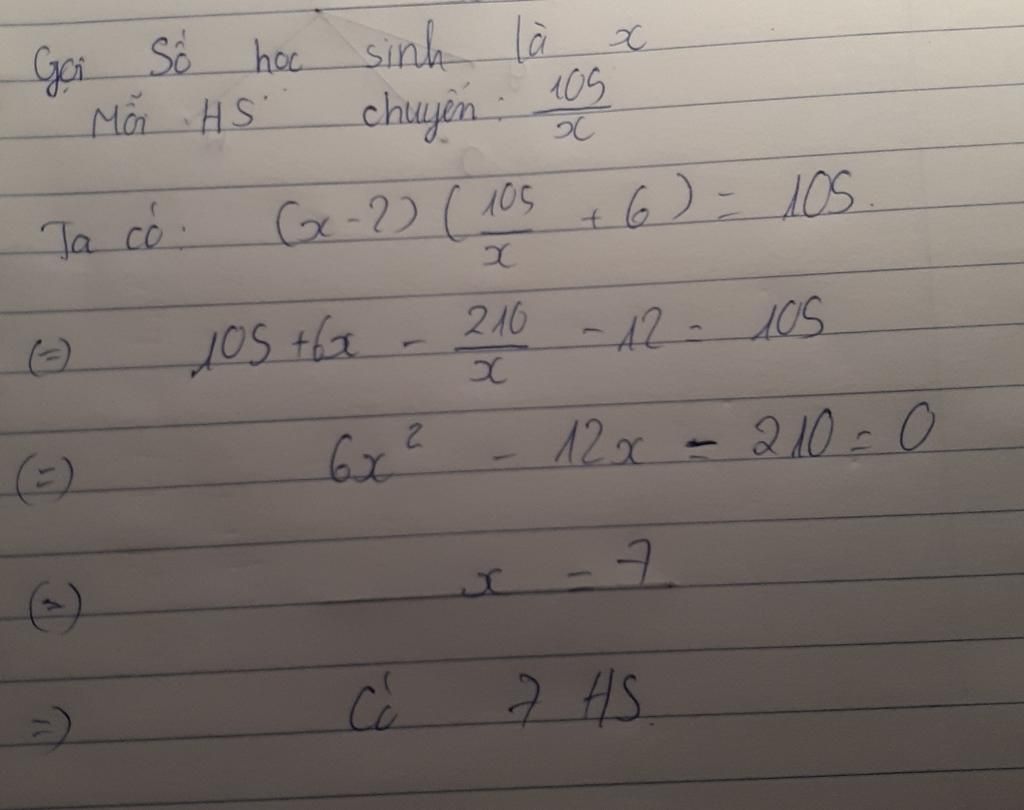 Gọi Số học sinh là x
Mỗi HS chuyển: 105/x
Ta có: (x - 2) (105/x + 6) = 105.
(=) 105 + 6x - 210/x - 12 = 105
(=) 6x² - 12x - 210 = 0
(=) x = 7
=) Có 7 HS.